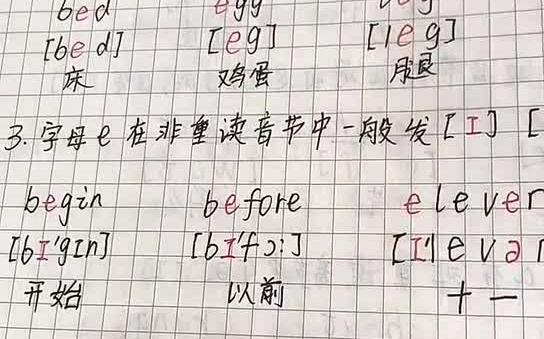 bed egg leg
[bed] [eg] [leg]
床 鸡蛋 腿
3. 字母e在非重读音节中一般发[I] [
begin before elever
[bI'gIn] [bI'fɔ:] [I'levər
开始 以前 十一